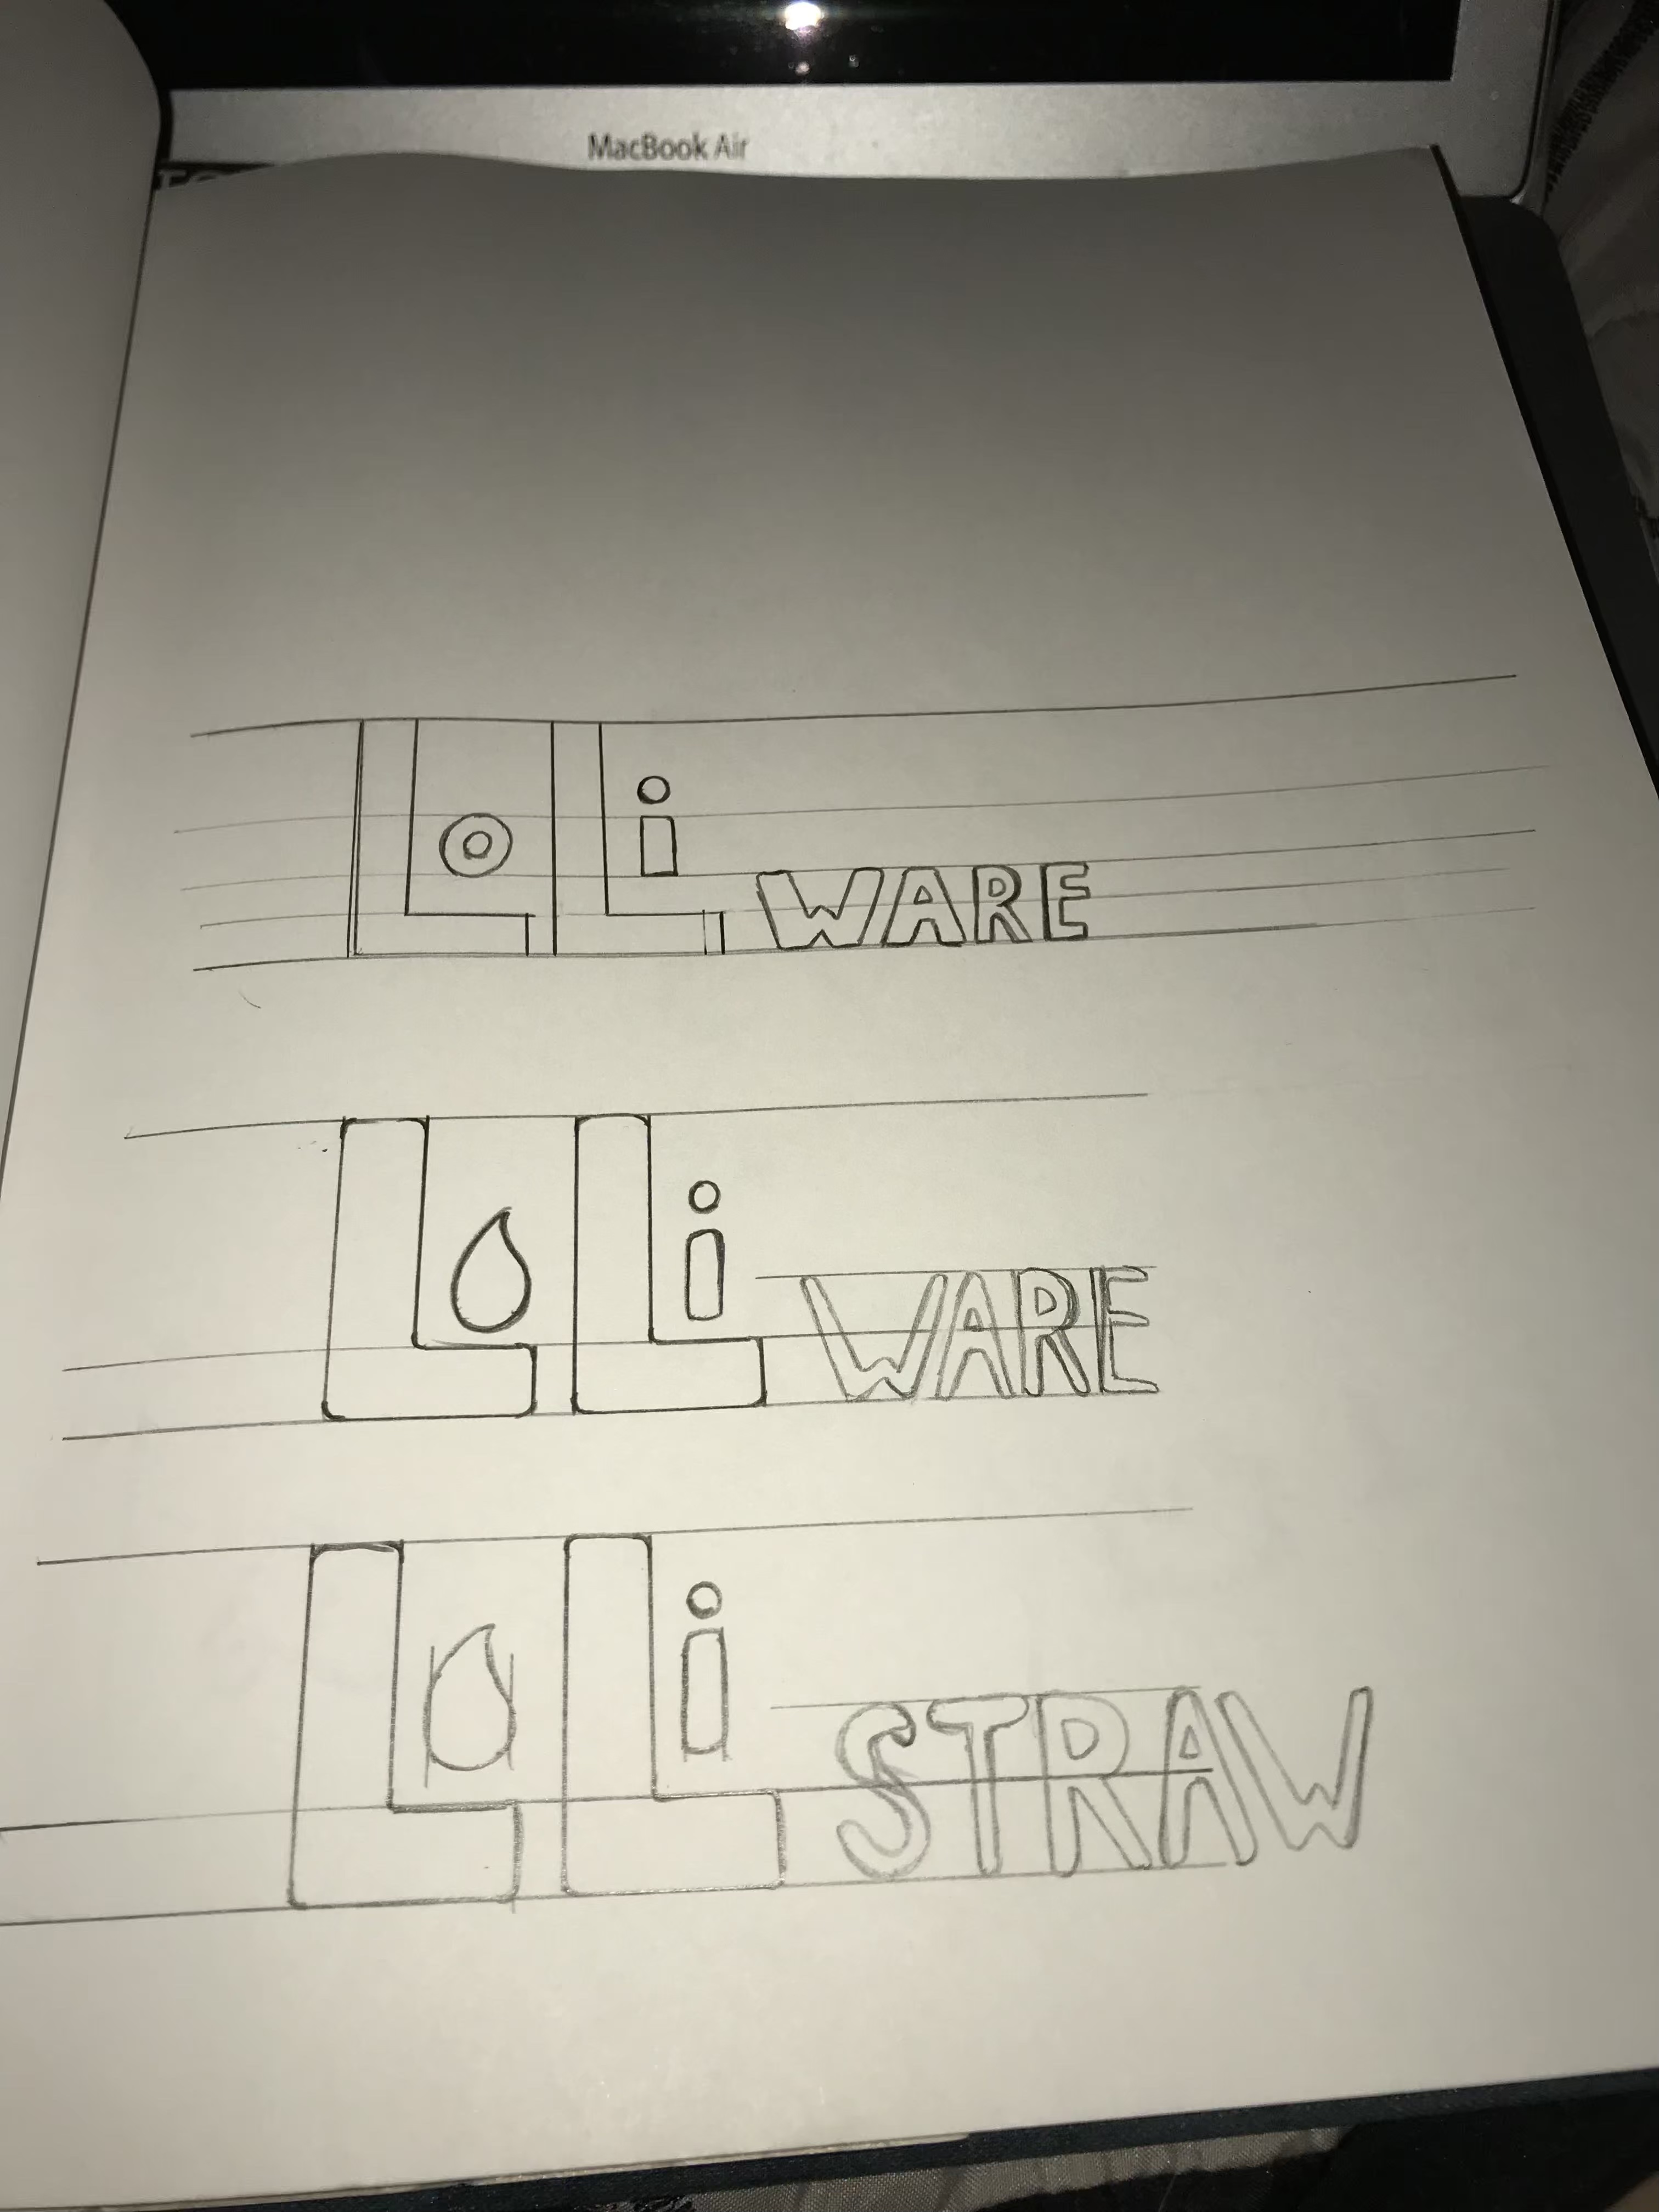 MacBook Air
LOLi WARE
LOLi WARE
LOLi STRAW